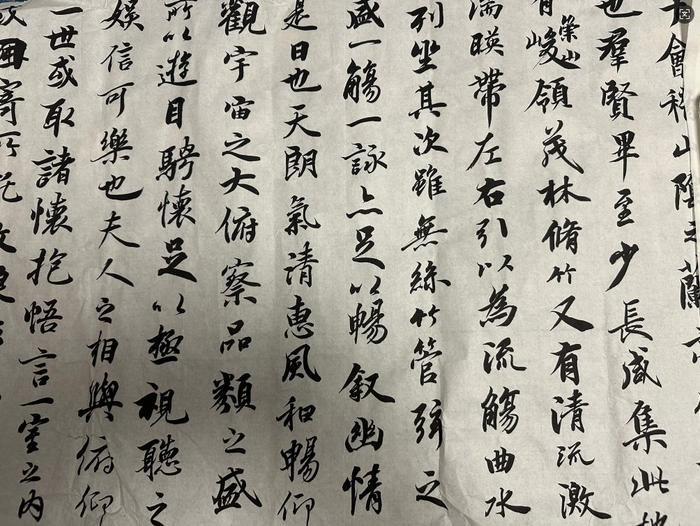 于會稽山陰之蘭
也羣賢畢至少長咸集此地
有崇山峻領茂林脩竹又有清流激
湍暎帶左右引以為流觴曲水
列坐其次雖無絲竹管弦之
盛一觴一詠亦足以暢敘幽情
是日也天朗氣清惠風和暢仰
觀宇宙之大俯察品類之盛
所以遊目騁懷足以極視聽之
娛信可樂也夫人之相與俯仰
一世或取諸懷抱悟言一室之内
或因寄所託放